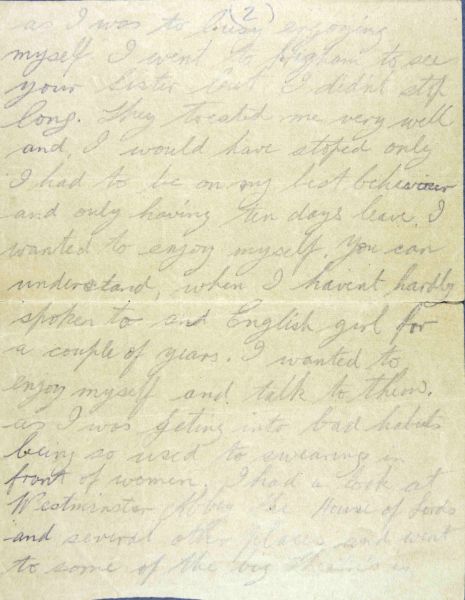 (2)
as I was to busy enjoying
myself I went to to see
your Sister but I didn't stop
long. They treated me very well
and, I would have stoped only
I had to be on my best behaviour
and only having ten days leave. I
wanted to enjoy myself. You can
understand, when I havent hardly
spoken to and English girl for
a couple of years. I wanted to
enjoy myself and talk to them.
as I was geting into bad habits
being so used to swearing in
front of women. I had a look at
Westminster Abbey the House of Lords
and several other places and went
to some of the big